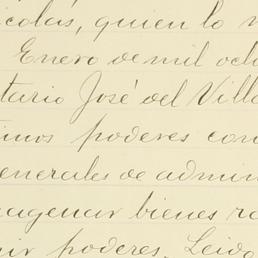 icolás, quien lo
Enero de mil och
tario José del Villa
imos poderes con
enerales de admin
agenar bienes ra
uir poderes. Leido